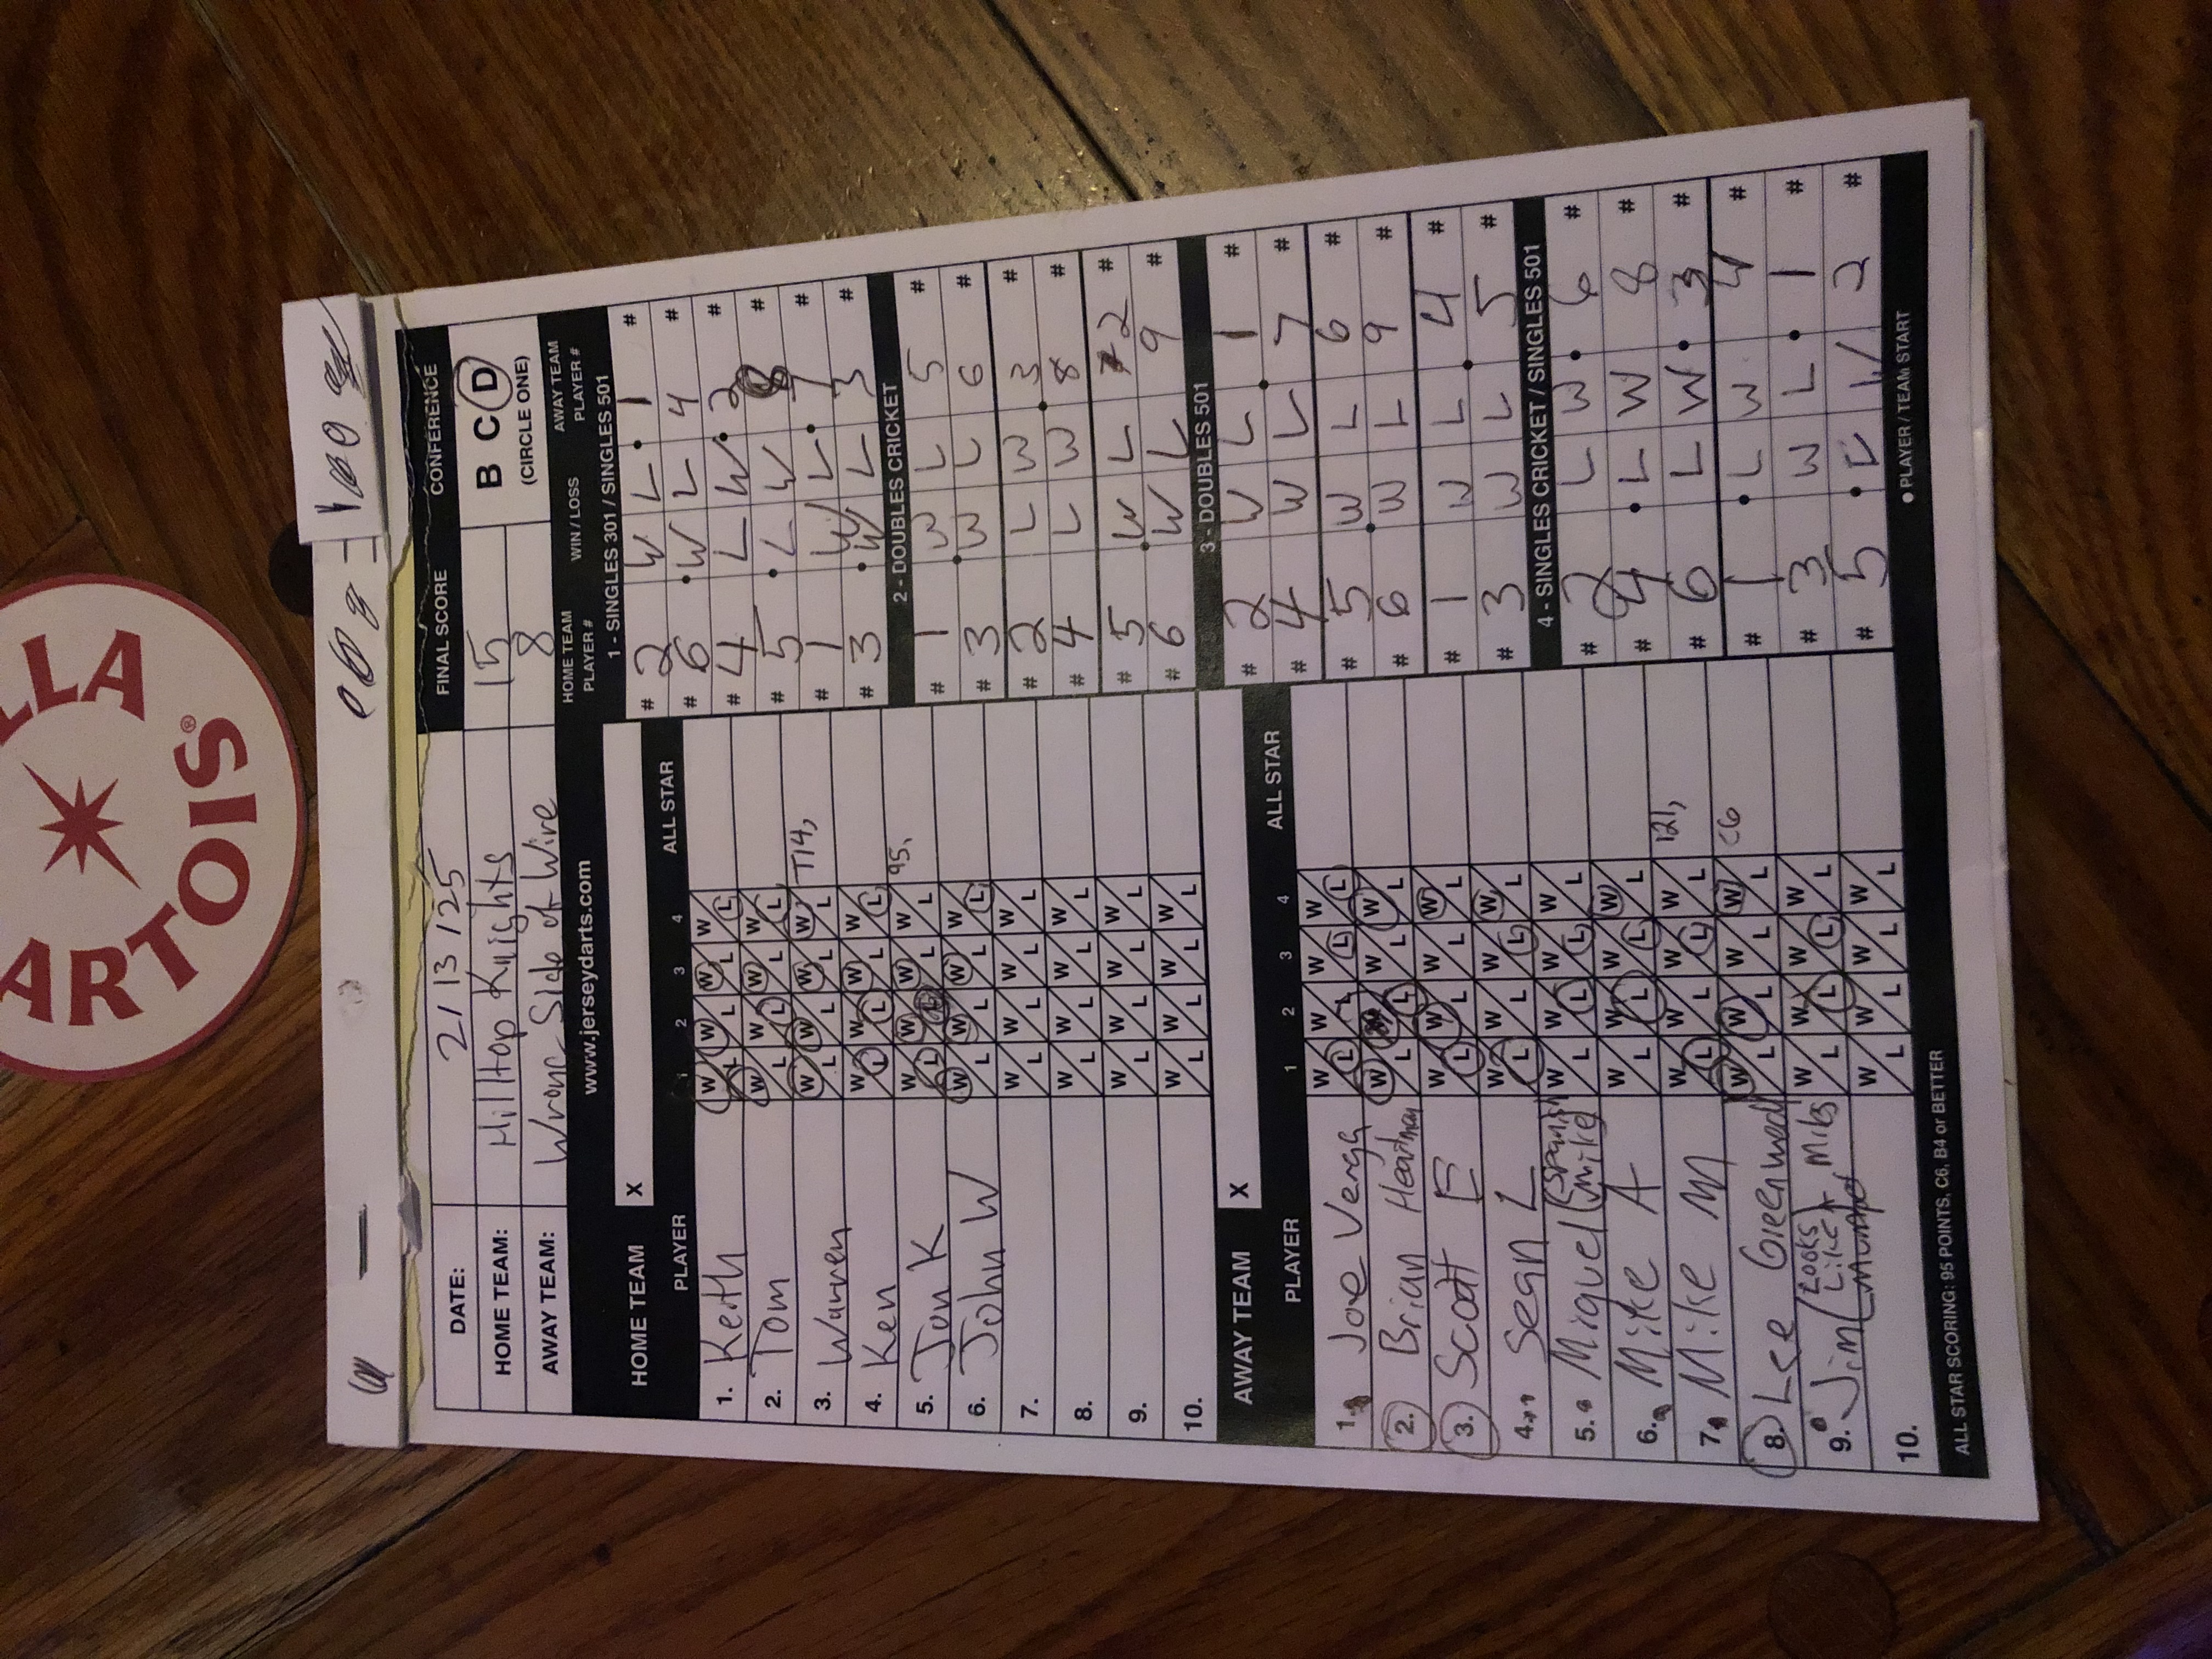 LLA
ARTOIS®
DATE: 2/13/25
FINAL SCORE
CONFERENCE
HOME TEAM: Hilltop Knights 15
B C D
AWAY TEAM: Wrong Side of Wire 8
(CIRCLE ONE)
www.jerseydarts.com
HOME TEAM X
PLAYER 1 2 3 4 ALL STAR
1. Keith W L W L W L W L
2. Tom W L W L W L W L
3. Warren W L W L W L W L T14,
4. Ken W L W L W L W L
5. Jon K W L W L W L W L 95,
6. John W W L W L W L W L
7. W L W L W L W L
8. W L W L W L W L
9. W L W L W L W L
10. W L W L W L W L
AWAY TEAM X
PLAYER 1 2 3 4 ALL STAR
1. Joe Verga W L W L W L W L
2. Brian Heartman W L W L W L W L
3. Scott E W L W L W L W L
4. Sean L W L W L W L W L
5. Miguel (Spanish Mike) W L W L W L W L
6. Mike A W L W L W L W L
7. Mike M W L W L W L W L 121,
8. Lee Greenwood W L W L W L W L C6
9. Jim (Looks Like A W L W L W L W L
10. W L W L W L W L
ALL STAR SCORING: 95 POINTS, C6, B4 or BETTER
HOME TEAM PLAYER #
WIN / LOSS
AWAY TEAM PLAYER #
1 - SINGLES 301 / SINGLES 501
# 2 W L 1 #
# 6 W L 4 #
# 4 L W 2 #
# 5 L W 8 #
# 1 W L 7 #
# 3 W L 3 #
2 - DOUBLES CRICKET
# 1 W L 5 #
# 3 W L 6 #
# 2 L W 3 #
# 4 L W 8 #
# 5 W L 2 #
# 6 W L 9 #
3 - DOUBLES 501
# 2 W L 1 #
# 4 W L 7 #
# 5 W L 6 #
# 6 W L 9 #
# 1 W L 4 #
# 3 W L 5 #
4 - SINGLES CRICKET / SINGLES 501
# 2 L W 6 #
# 4 L W 8 #
# 6 L W 3 #
# 1 L W 4 #
# 3 W L 1 #
# 5 L W 2 #
● PLAYER / TEAM START